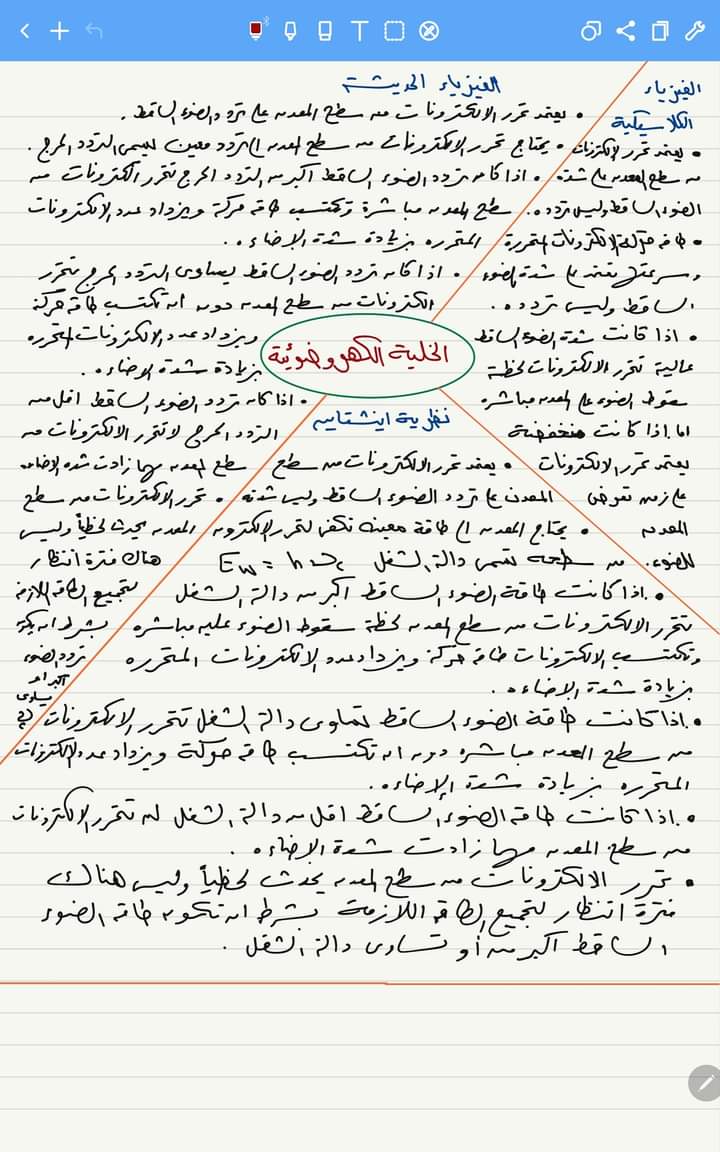 الفيزياء الكلاسيكية
• يعتمد تحرر الإلكترونات
من سطح المعدن على شدة
الضوء الساقط وليس تردده.
• طاقة حركة الالكترونات المتحررة
وسرعتها تعتمد على شدة الضوء
الساقط وليس تردده.
• اذا كانت شدة الضوء الساقط
عالية تتحرر الالكترونات لحظة
سقوط الضوء على المعدن مباشره
اما اذا كانت منخفضة
يعتمد تحرر الالكترونات
على زمن تعرض
المعدن
للضوء.
الفيزياء الحديثة
• يعتمد تحرر الالكترونات من سطح المعدن على تردد الضوء الساقط.
• يحتاج تحرر الالكترونات من سطح المعدن الى تردد معين يسمى التردد الحرج.
• اذا كان تردد الضوء الساقط اكبر من التردد الحرج تتحرر الكترونات من
سطح المعدن مباشرة وتكتسب طاقة حركة ويزداد عدد الالكترونات
المتحرره بزيادة شدة الإضاءه.
• اذا كان تردد الضوء الساقط يساوى التردد الحرج تتحرر
الكترونات من سطح المعدن دون ان تكتسب طاقة حركة
ويزداد عدد الالكترونات المتحرره
بزيادة شدة الإضاءه.
• اذا كان تردد الضوء الساقط اقل من
التردد الحرج لا تتحرر الالكترونات من
سطح المعدن مهما زادت شده الإضاءه
• تحرر الالكترونات من سطح
المعدن يحدث لحظياً وليس
هناك فترة انتظار
لتجميع الطاقه اللازمه
بشرط ان يكون
تردد الضوء
اكبر او
يساوى
الخلية الكهروضوئية
نظرية اينشتاين
• يعتمد تحرر الالكترونات من سطح
المعدن على تردد الضوء الساقط وليس شدته
• يحتاج المعدن الى طاقة معينه تكفى لتحرر الكترون
من سطحه تسمى دالة الشغل Ew = hυc
• اذا كانت طاقة الضوء الساقط اكبر من دالة الشغل
تتحرر الالكترونات من سطح المعدن لحظة سقوط الضوء عليه مباشره
وتكتسب الالكترونات طاقة حركة ويزداد عدد الالكترونات المتحرره
بزيادة شدة الإضاءه.
• اذا كانت طاقة الضوء الساقط تساوى دالة الشغل تتحرر الالكترونات
من سطح المعدن مباشره دون ان تكتسب طاقة حركة ويزداد عدد الإلكترونات
المتحرره بزيادة شدة الإضاءه.
• اذا كانت طاقة الضوء الساقط اقل من دالة الشغل لن تتحرر الإلكترونات
من سطح المعدن مهما زادت شدة الإضاءه.
• تحرر الالكترونات من سطح المعدن يحدث لحظياً وليس هناك
فترة انتظار لتجميع الطاقه اللازمة بشرط ان تكون طاقه الضوء
الساقط اكبر من أو تساوى دالة الشغل.